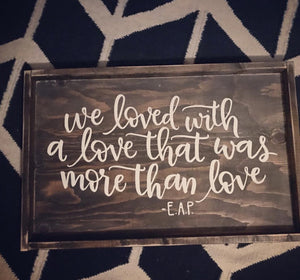 we loved with
a love that was
more than love
-E.A.P.